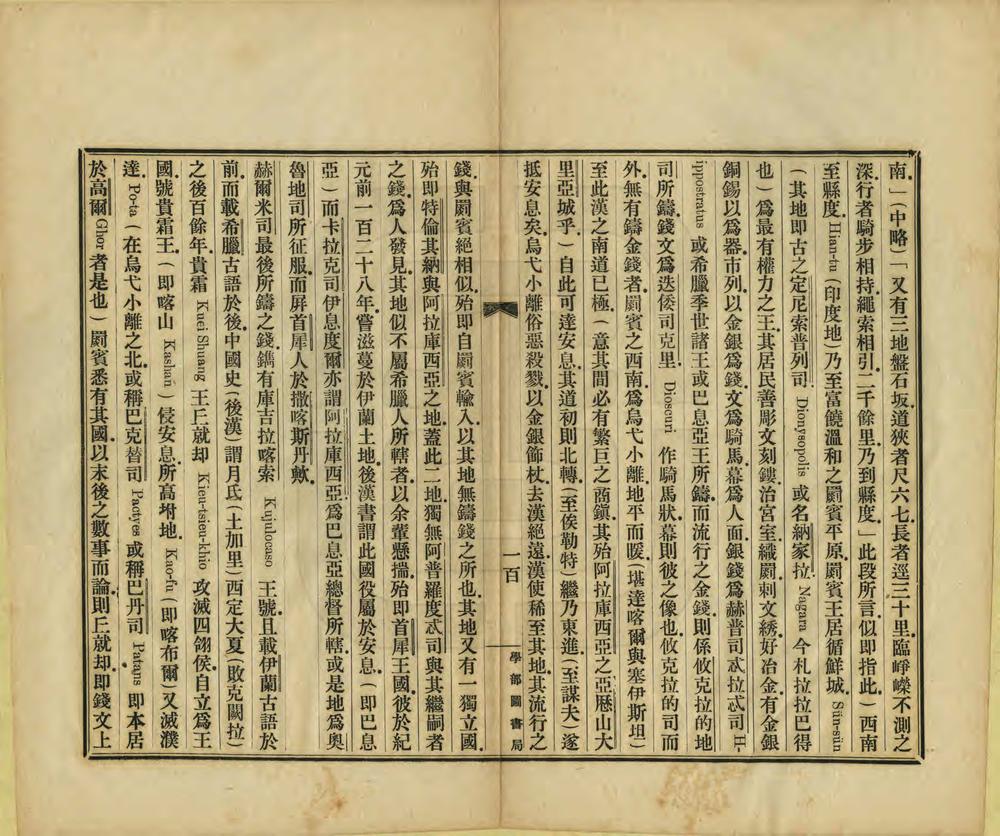 南」(中略)「又有三地盤石坂道狹者尺六七長者逕三十里臨崢嶸不測之
深行者騎步相持繩索相引二千餘里乃到縣度」此段所言似即指此)西南
至縣度 Hian-tu(印度地)乃至富饒溫和之罽賓平原罽賓王居循鮮城 Siün-sün
(其地即古之定尼索普列司 Dionysopolis 或名納家拉 Nagara 今札拉拉巴得
也)爲最有權力之王其居民善彫文刻鏤治宮室織罽刺文綉好冶金有金銀
銅錫以爲器市列以金銀爲錢文爲騎馬幕爲人面銀錢爲赫普司忒拉忒司 Hi-
ppostratus 或希臘季世諸王或巴息亞王所鑄而流行之金錢則係攸克拉的地
司所鑄錢文爲迭倭司克里 Dioscuri 作騎馬狀幕則彼之像也攸克拉的司而
外無有鑄金錢者罽賓之西南爲烏弋小離地平而暖(堪達喀爾與塞伊斯坦)
至此漢之南道已極(意其間必有繁巨之商鎭其殆阿拉庫西亞之亞歷山大
里亞城乎)自此可達安息其道初則北轉(至俟勒特)繼乃東進(至謀夫)遂
抵安息矣烏弋小離俗惡殺戮以金銀飾杖去漢絕遠漢使稀至其地其流行之
一百
學部圖書局
錢與罽賓絕相似殆即自罽賓輸入以其地無鑄錢之所也其地又有一獨立國
殆即特倫其納與阿拉庫西亞之地蓋此二地獨無阿普羅度忒司與其繼嗣者
之錢爲人發見其地似不屬希臘人所轄者以余輩懸揣殆即首犀王國彼於紀
元前一百二十八年嘗滋蔓於伊蘭土地後漢書謂此國役屬於安息(即巴息
亞)而卡拉克司伊息度爾亦謂阿拉庫西亞爲巴息亞總督所轄或是地爲奧
魯地司所征服而屏首犀人於撒喀斯丹歟
赫爾米司最後所鑄之錢鐫有庫吉拉喀索 Kujulocaso 王號且載伊蘭古語於
前而載希臘古語於後中國史(後漢)謂月氏(土加里)西定大夏(敗克闕拉)
之後百餘年貴霜 Kuei Shuang 王丘就却 Kieu-tsieu-khio 攻滅四翎侯自立爲王
國號貴霜王(即喀山 Kashan)侵安息所高坿地 Kao-fu(即喀布爾)又滅濮
達 Po-ta(在烏弋小離之北或稱巴克替司 Pactyes 或稱巴丹司 Patans 即本居
於高爾 Ghor 者是也)罽賓悉有其國以末後之數事而論則丘就却即錢文上